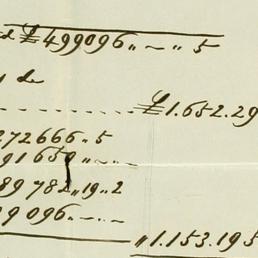 d £ 499096 „ ~ „ 5
de
£1.652.29
272666 „ 5
91659 „ ~ „ ~
89782 „ 19 „ 2
9096 „ ~ „ ~
„ 1.153.195